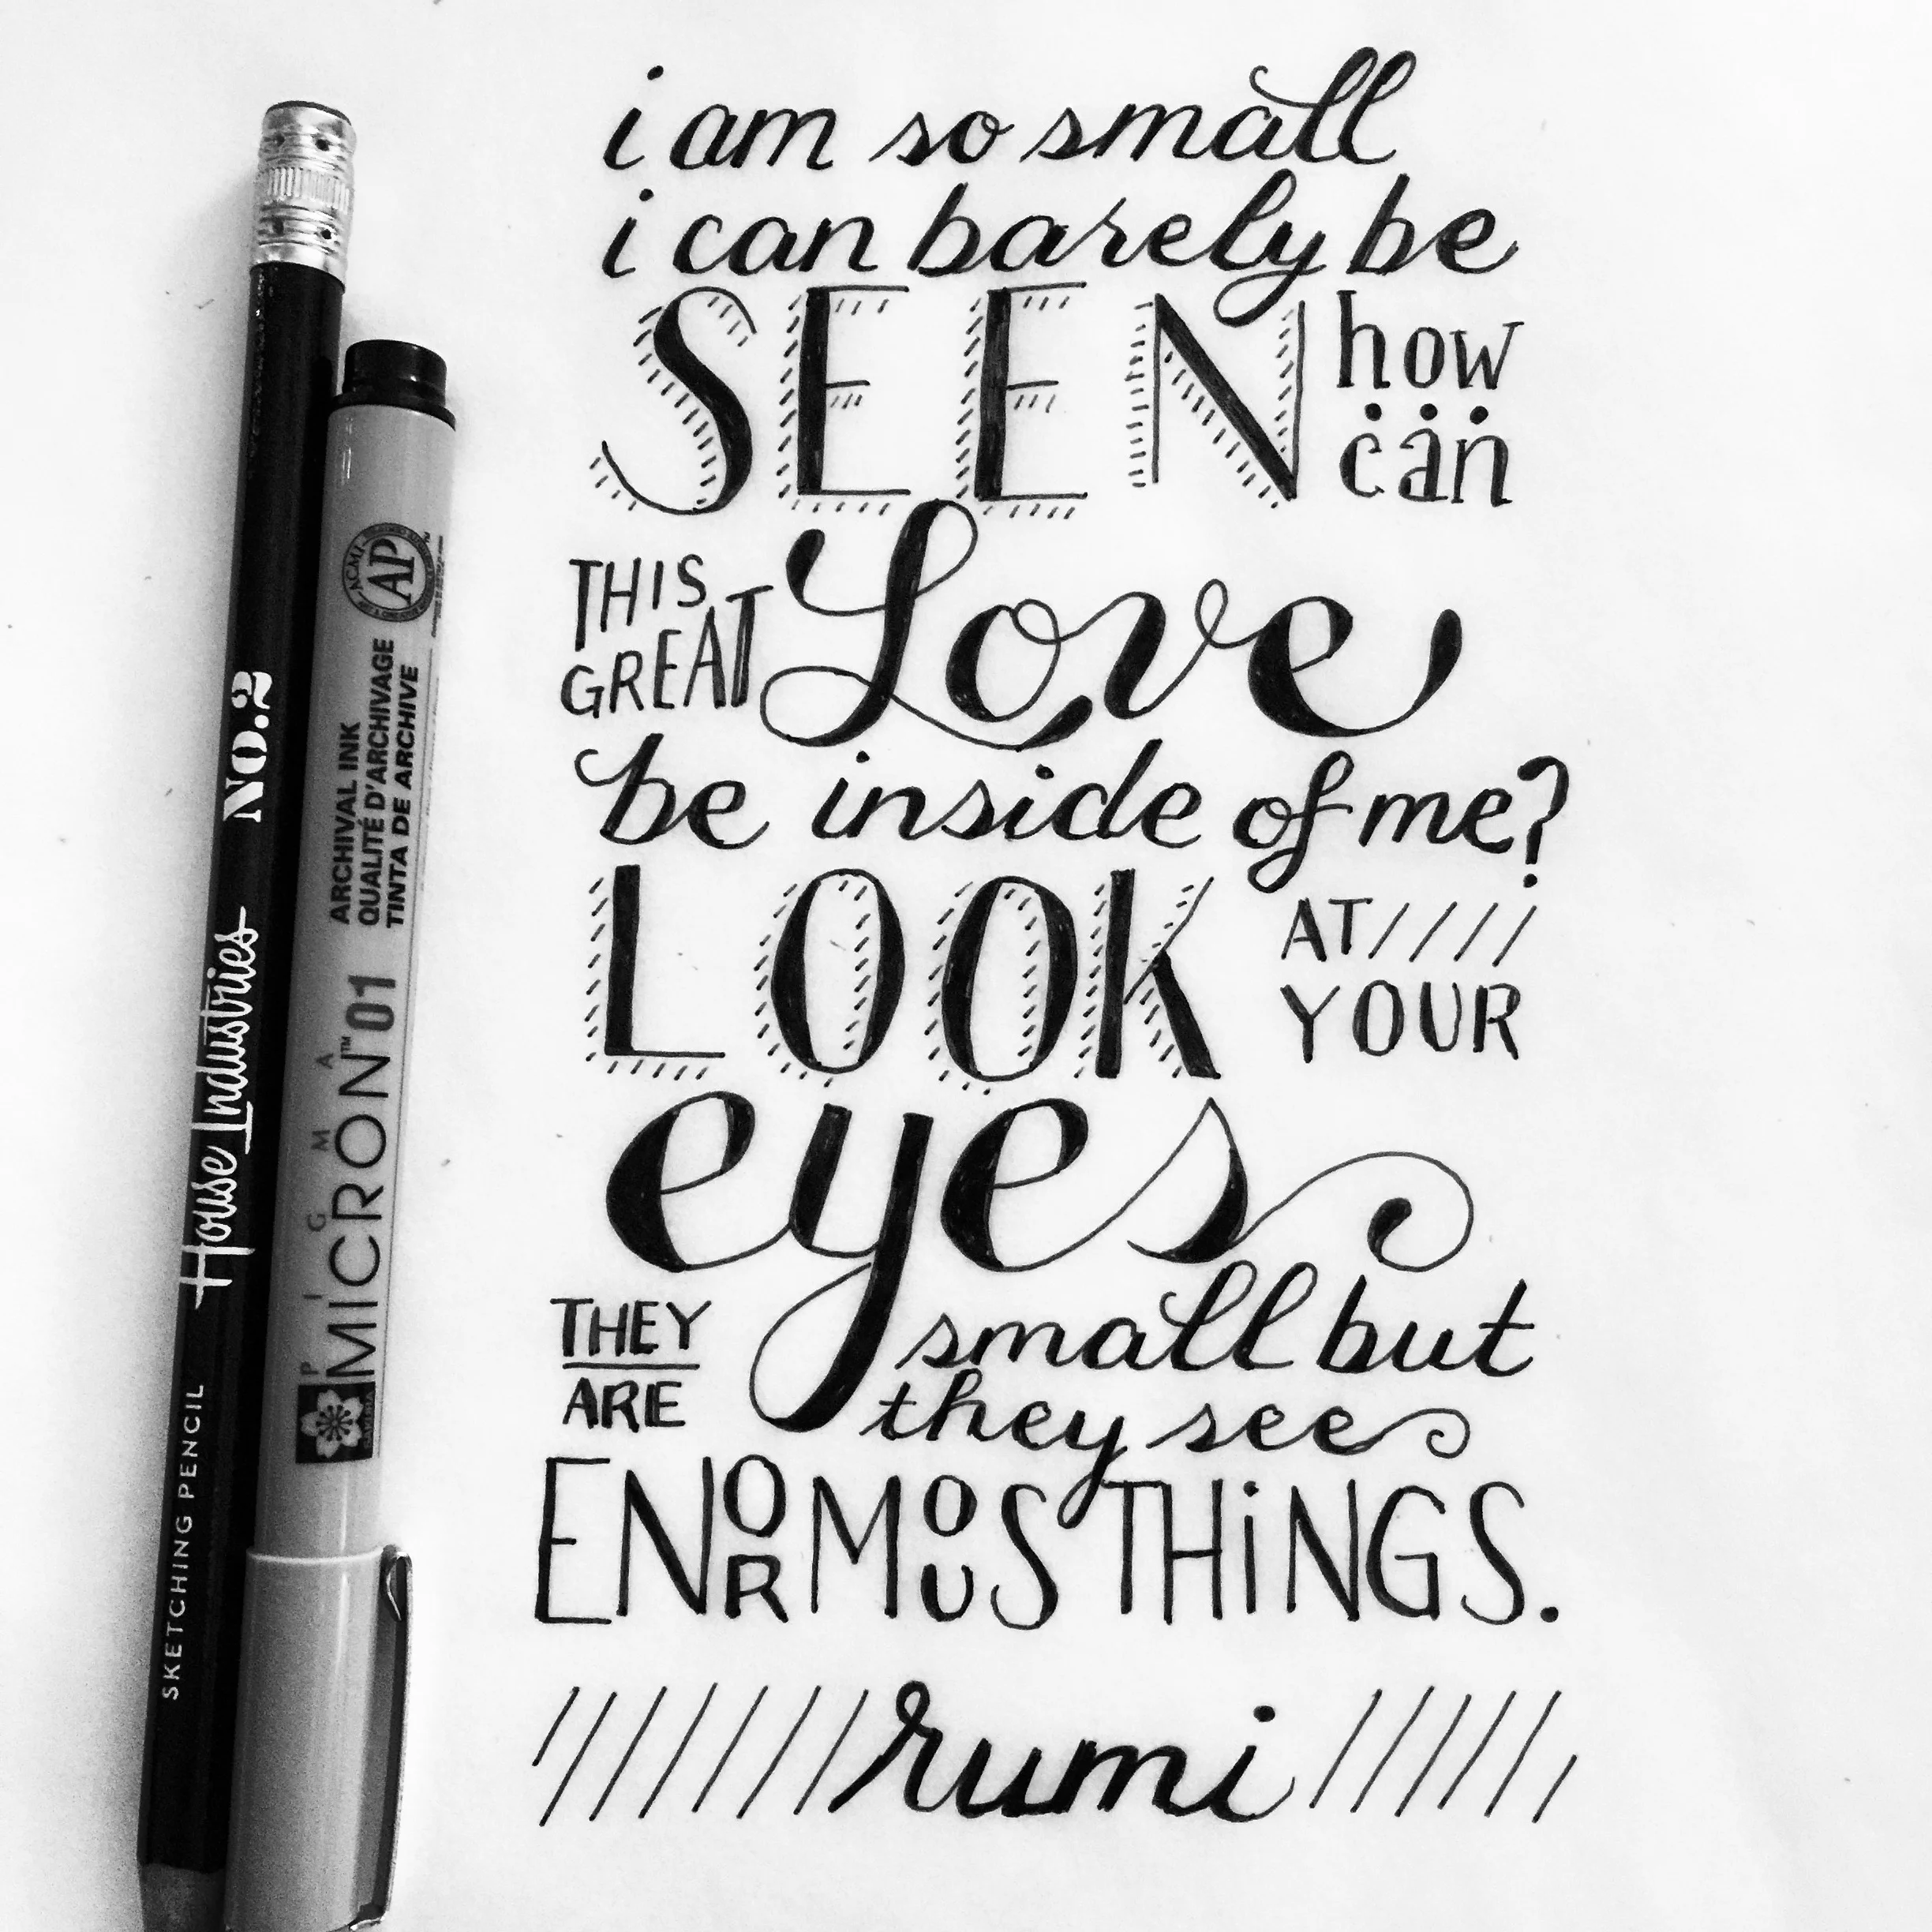 i am so small
i can barely be
SEEN how
can
THIS
GREAT Love
be inside of me?
LOOK AT////
YOUR
eyes
THEY
ARE
small but
they see
ENORMOUS THiNGS.
rumi
No.2
House Industries
SKETCHING PENCIL
ACMI
AP
ARCHIVAL INK
QUALITÉ D'ARCHIVAGE
TINTA DE ARCHIVE
PIGMA
MICRON™ 01